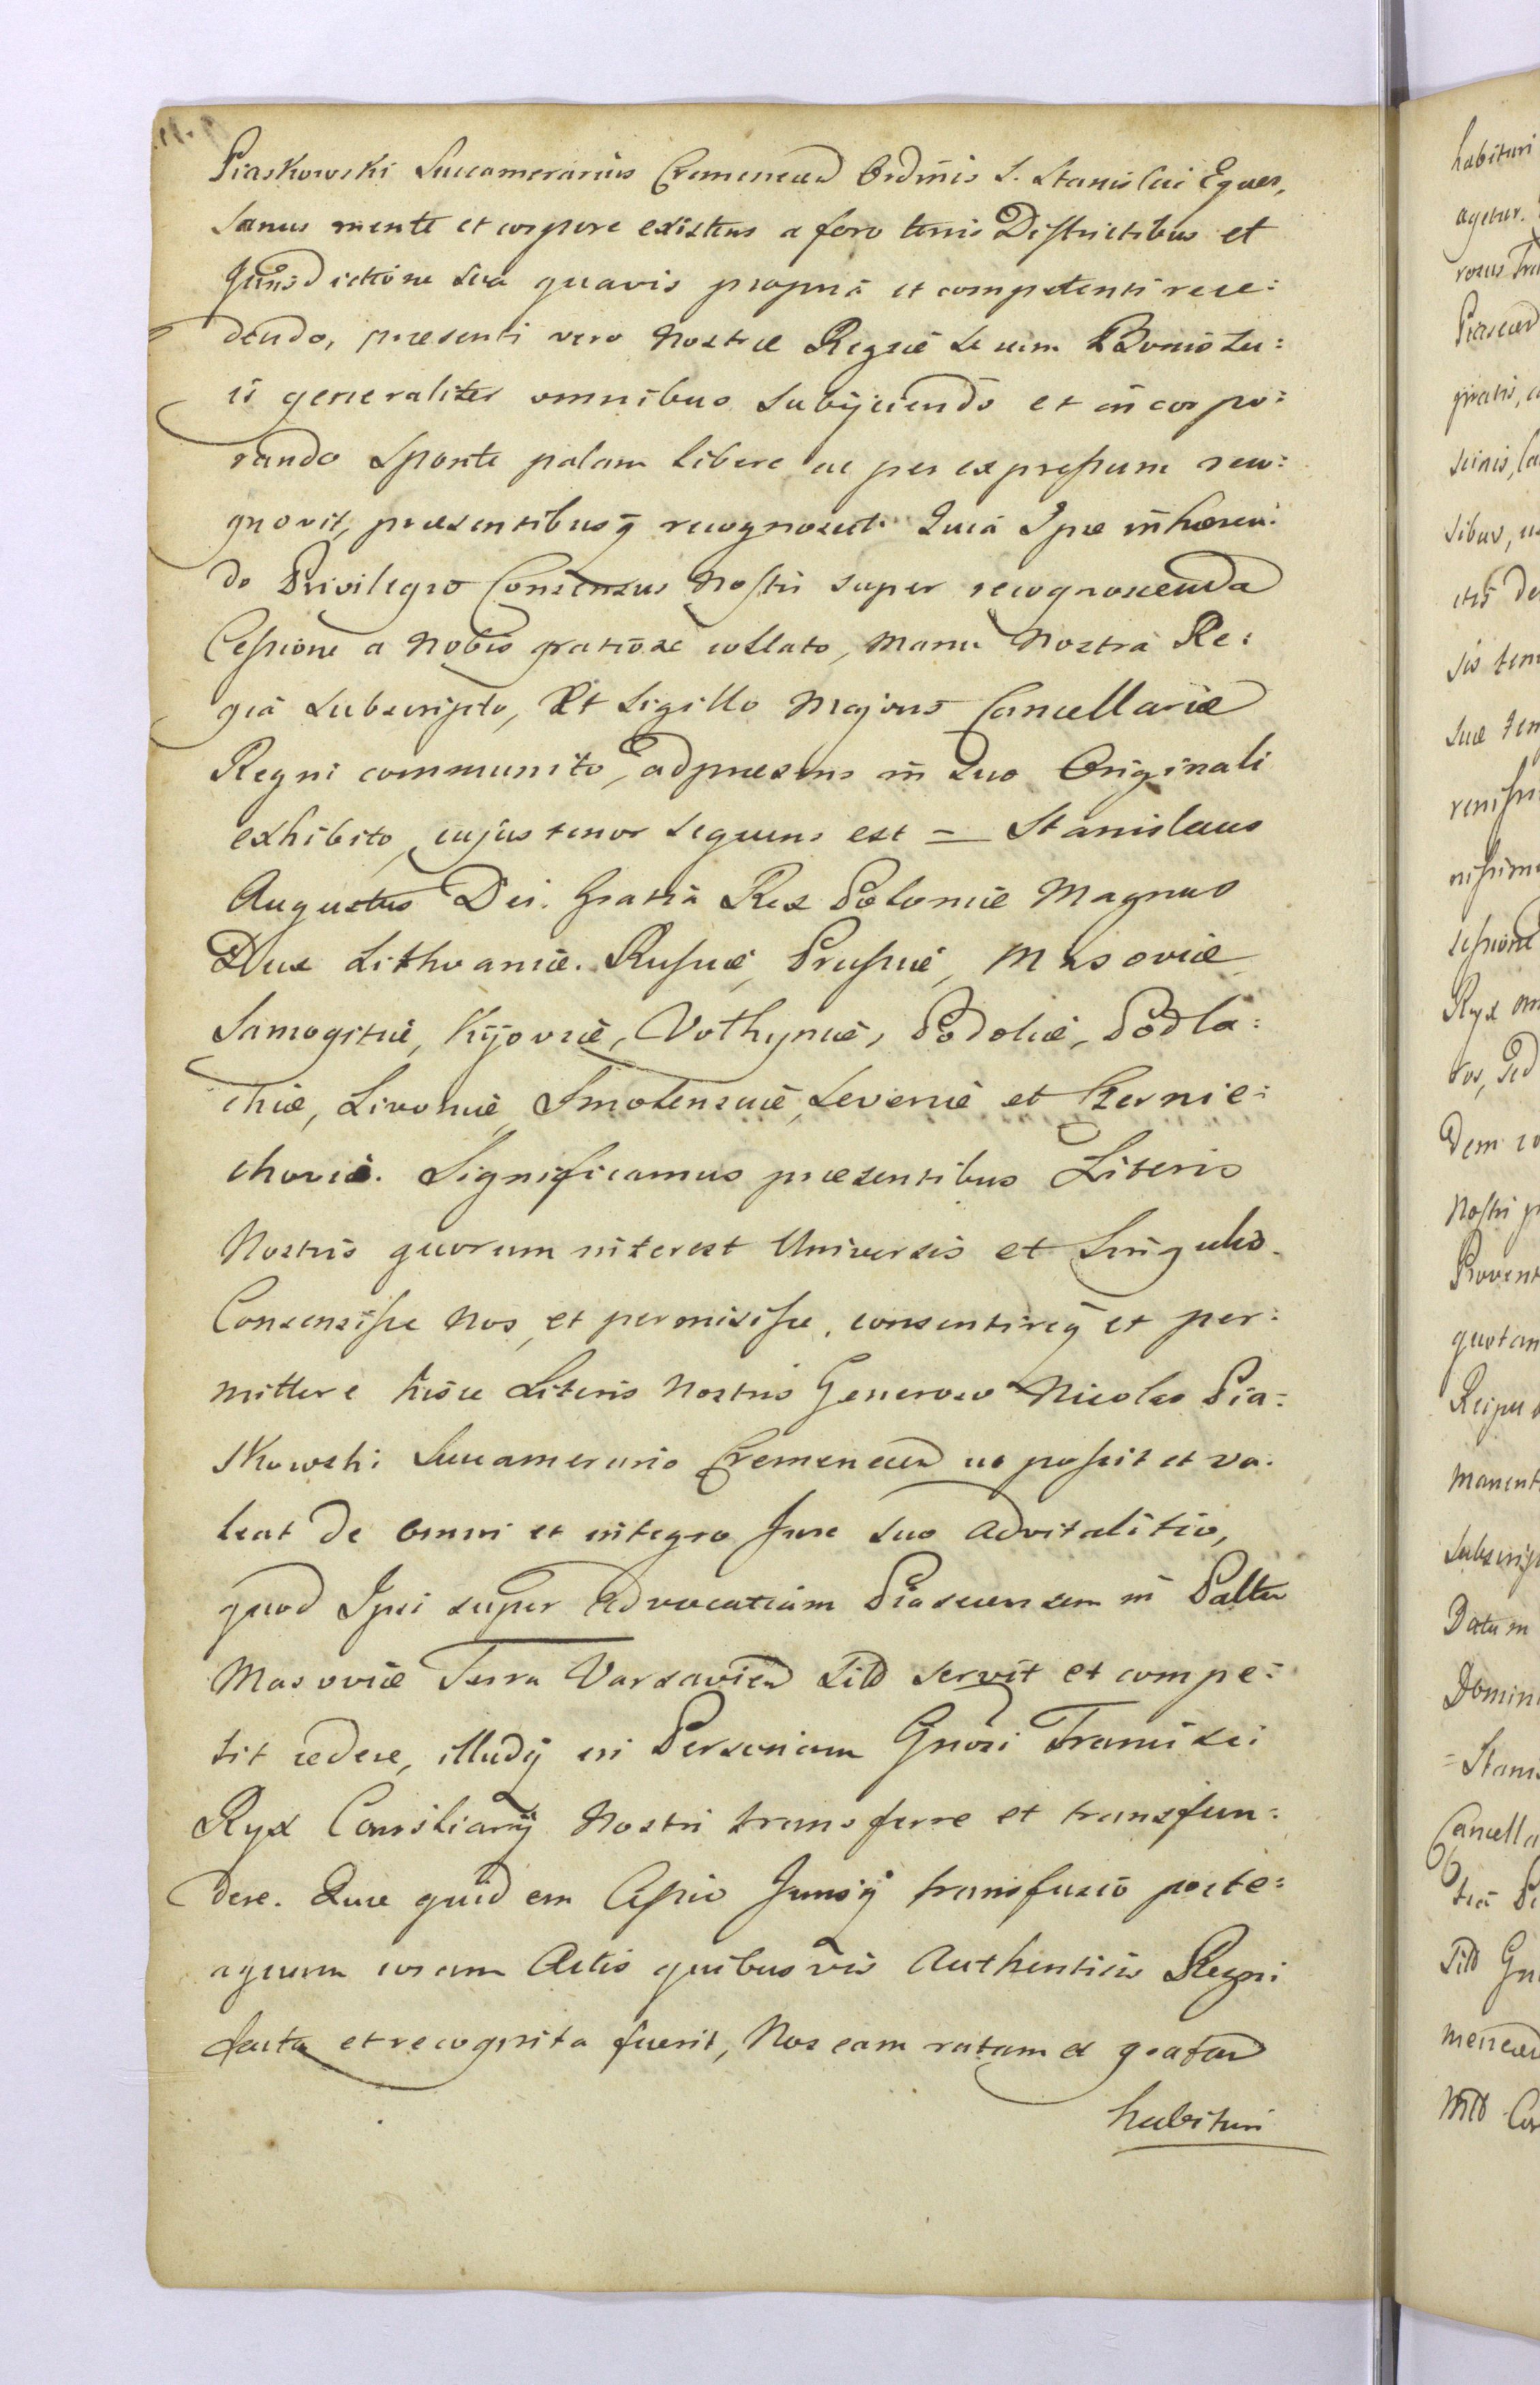 Piaskowski Succamerarius Cremenecen Ordinis S. Stanislai Eques,
Sanus mente et corpore existens a foro terris Districtibus et
Jurisdictione sua quavis propriâ et competenti rece:
dendo, præsenti vero Nostræ Regiæ se cum Bonis su:
is generaliter omnibus subijciendo et incorpo:
rando sponte palam libere ac per expressum reco:
gnovit, præsentibusq recognoscit. Quia Ipse inhæren:
do Privilegio Consensus Nostri super recognoscenda
Cessione a Nobis gratiose collato, manu Nostrâ Re:
giâ subscripto, Et Sigillo Majoris Cancellariæ
Regni communito, adpræsens in suo Originali
exhibito, cujus tenor sequens est = Stanislaus
Augustus Dei Gratiâ Rex Poloniæ Magnus
Dux Lithvaniæ. Russiæ, Prussiæ, Masoviæ
Samogitiæ, Kijoviæ, Volhyniæ, Podoliæ, Podla:
chiæ, Livoniæ, Smolensciæ, Severiæ et Czernie:
choviæ. Significamus præsentibus Literis
Nostris quorum interest Universis et Singulis.
Consensisse Nos, et permisisse, consentireq et per:
mittere hisce Literis Nostris Generoso Nicolao Pia:
skowski Succamerario Cremenecen ut possit et va:
leat de omni et integro Jure suo advitalitio,
quod Ipsi super advocatiam Piasecensem in Pallu
Masoviæ Terra Varsavien sitt servit et compe:
tit cedere, illudq in Personam Gnosi Francisci
Ryx Consiliarij Nostri transferre et transfun:
dere. Quæ quidem Cessio Jurisq transfusio postea
quam coram Actis quibusvis Authenticis Regni
facta et recognita fuerit, Nos eam ratam et gratam
habituri